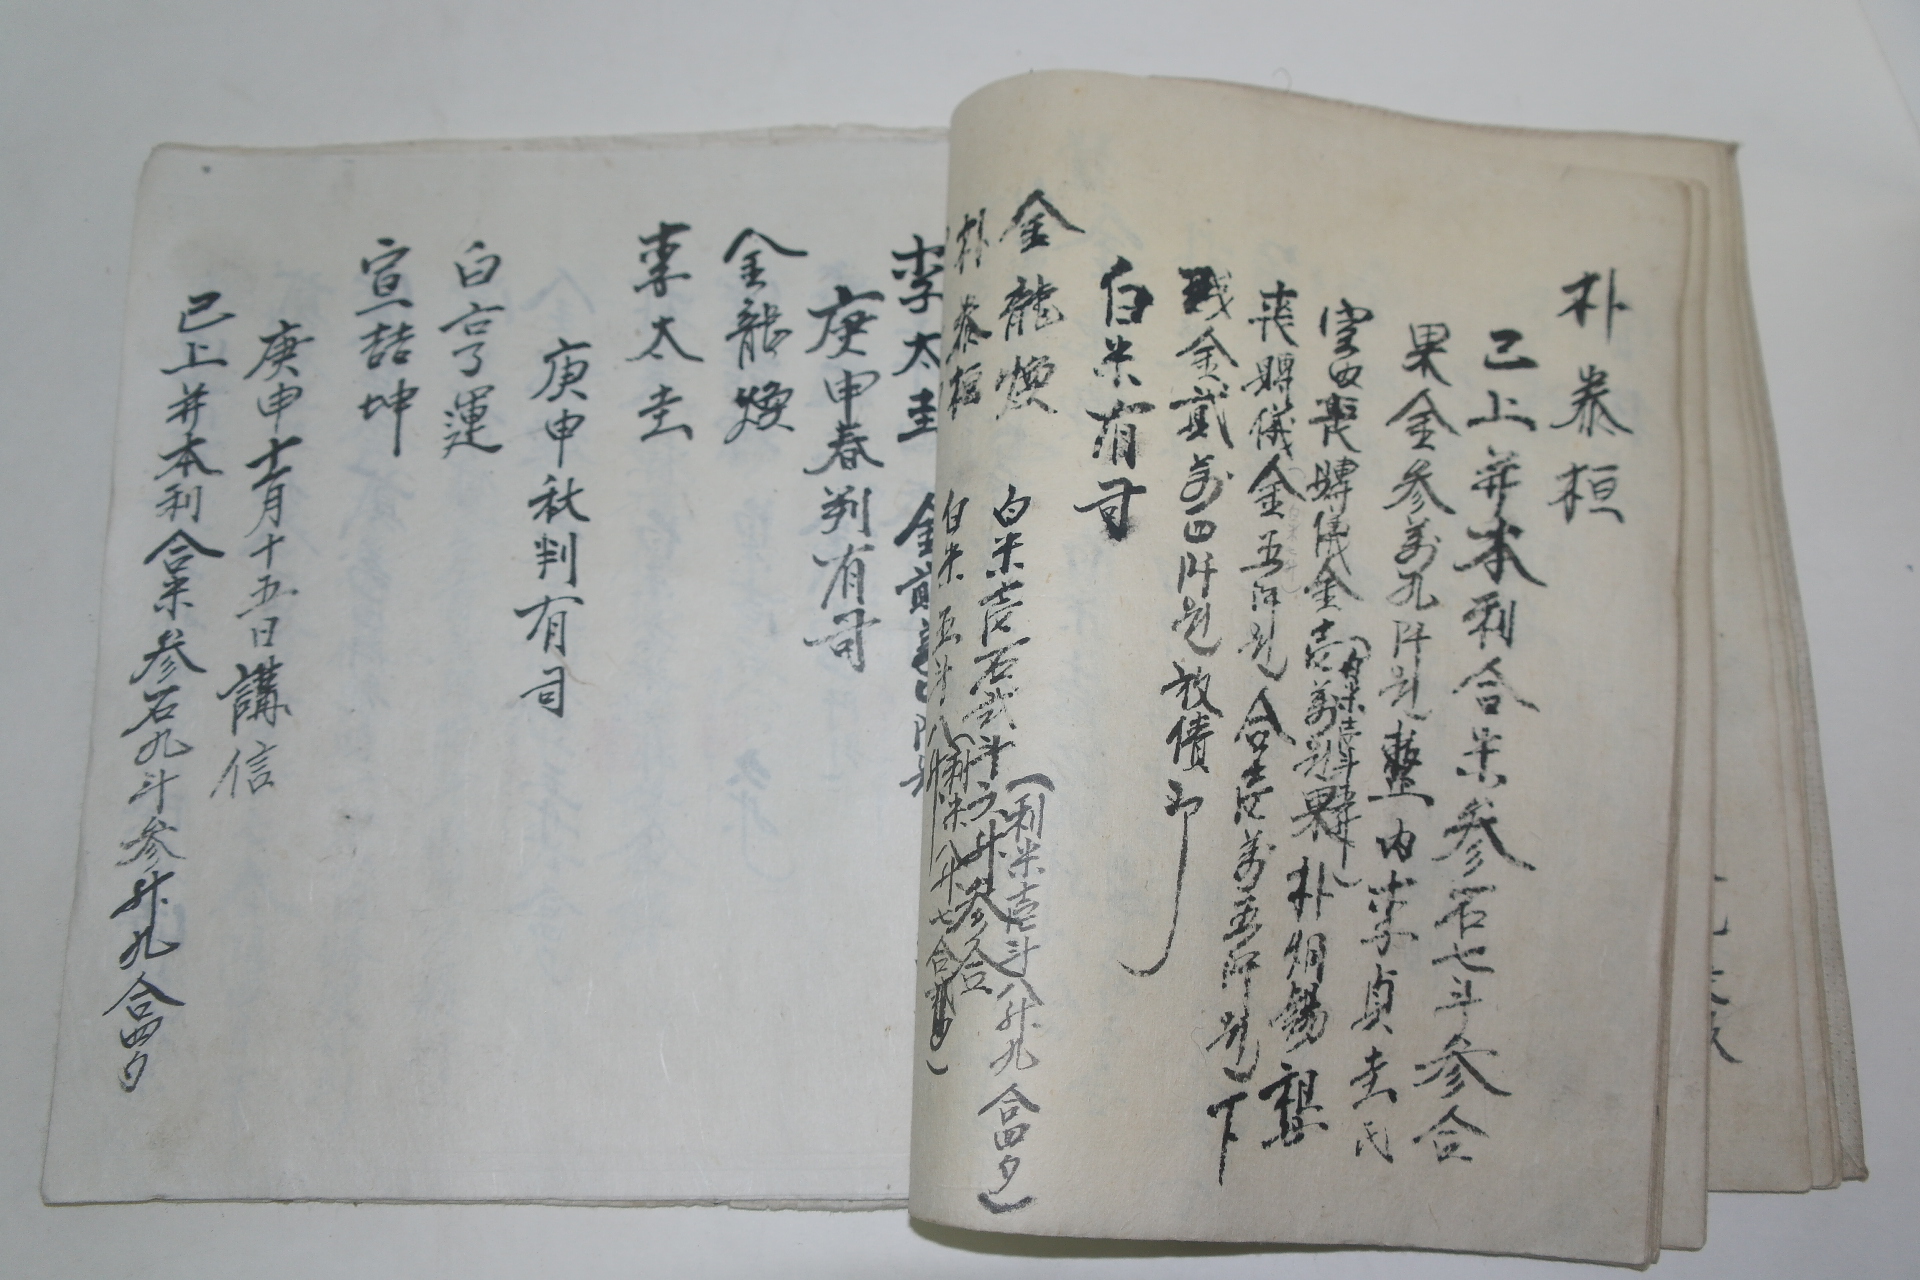 朴泰桓
已上并本利合米参石七斗参合
果金参萬九阡 整內李貞圭氏
喪賻儀金壹萬 果 朴炯錫
(白米壹斗
喪賻儀金五阡 合壹萬五阡 下
戔金貳萬四阡 放債印
白米有司
金龍煥 白米壹石貳斗六升参合
(利米壹斗八升九合四夕)
朴泰桓 白米五斗八升
(利米八升七合貳夕)
李太圭 金貳萬四阡
庚申春判有司
金龍煥
李太圭
庚申秋判有司
白亨運
宣喆坤
庚申十一月十五日講信
已上并本利合米参石九斗参升九合四夕